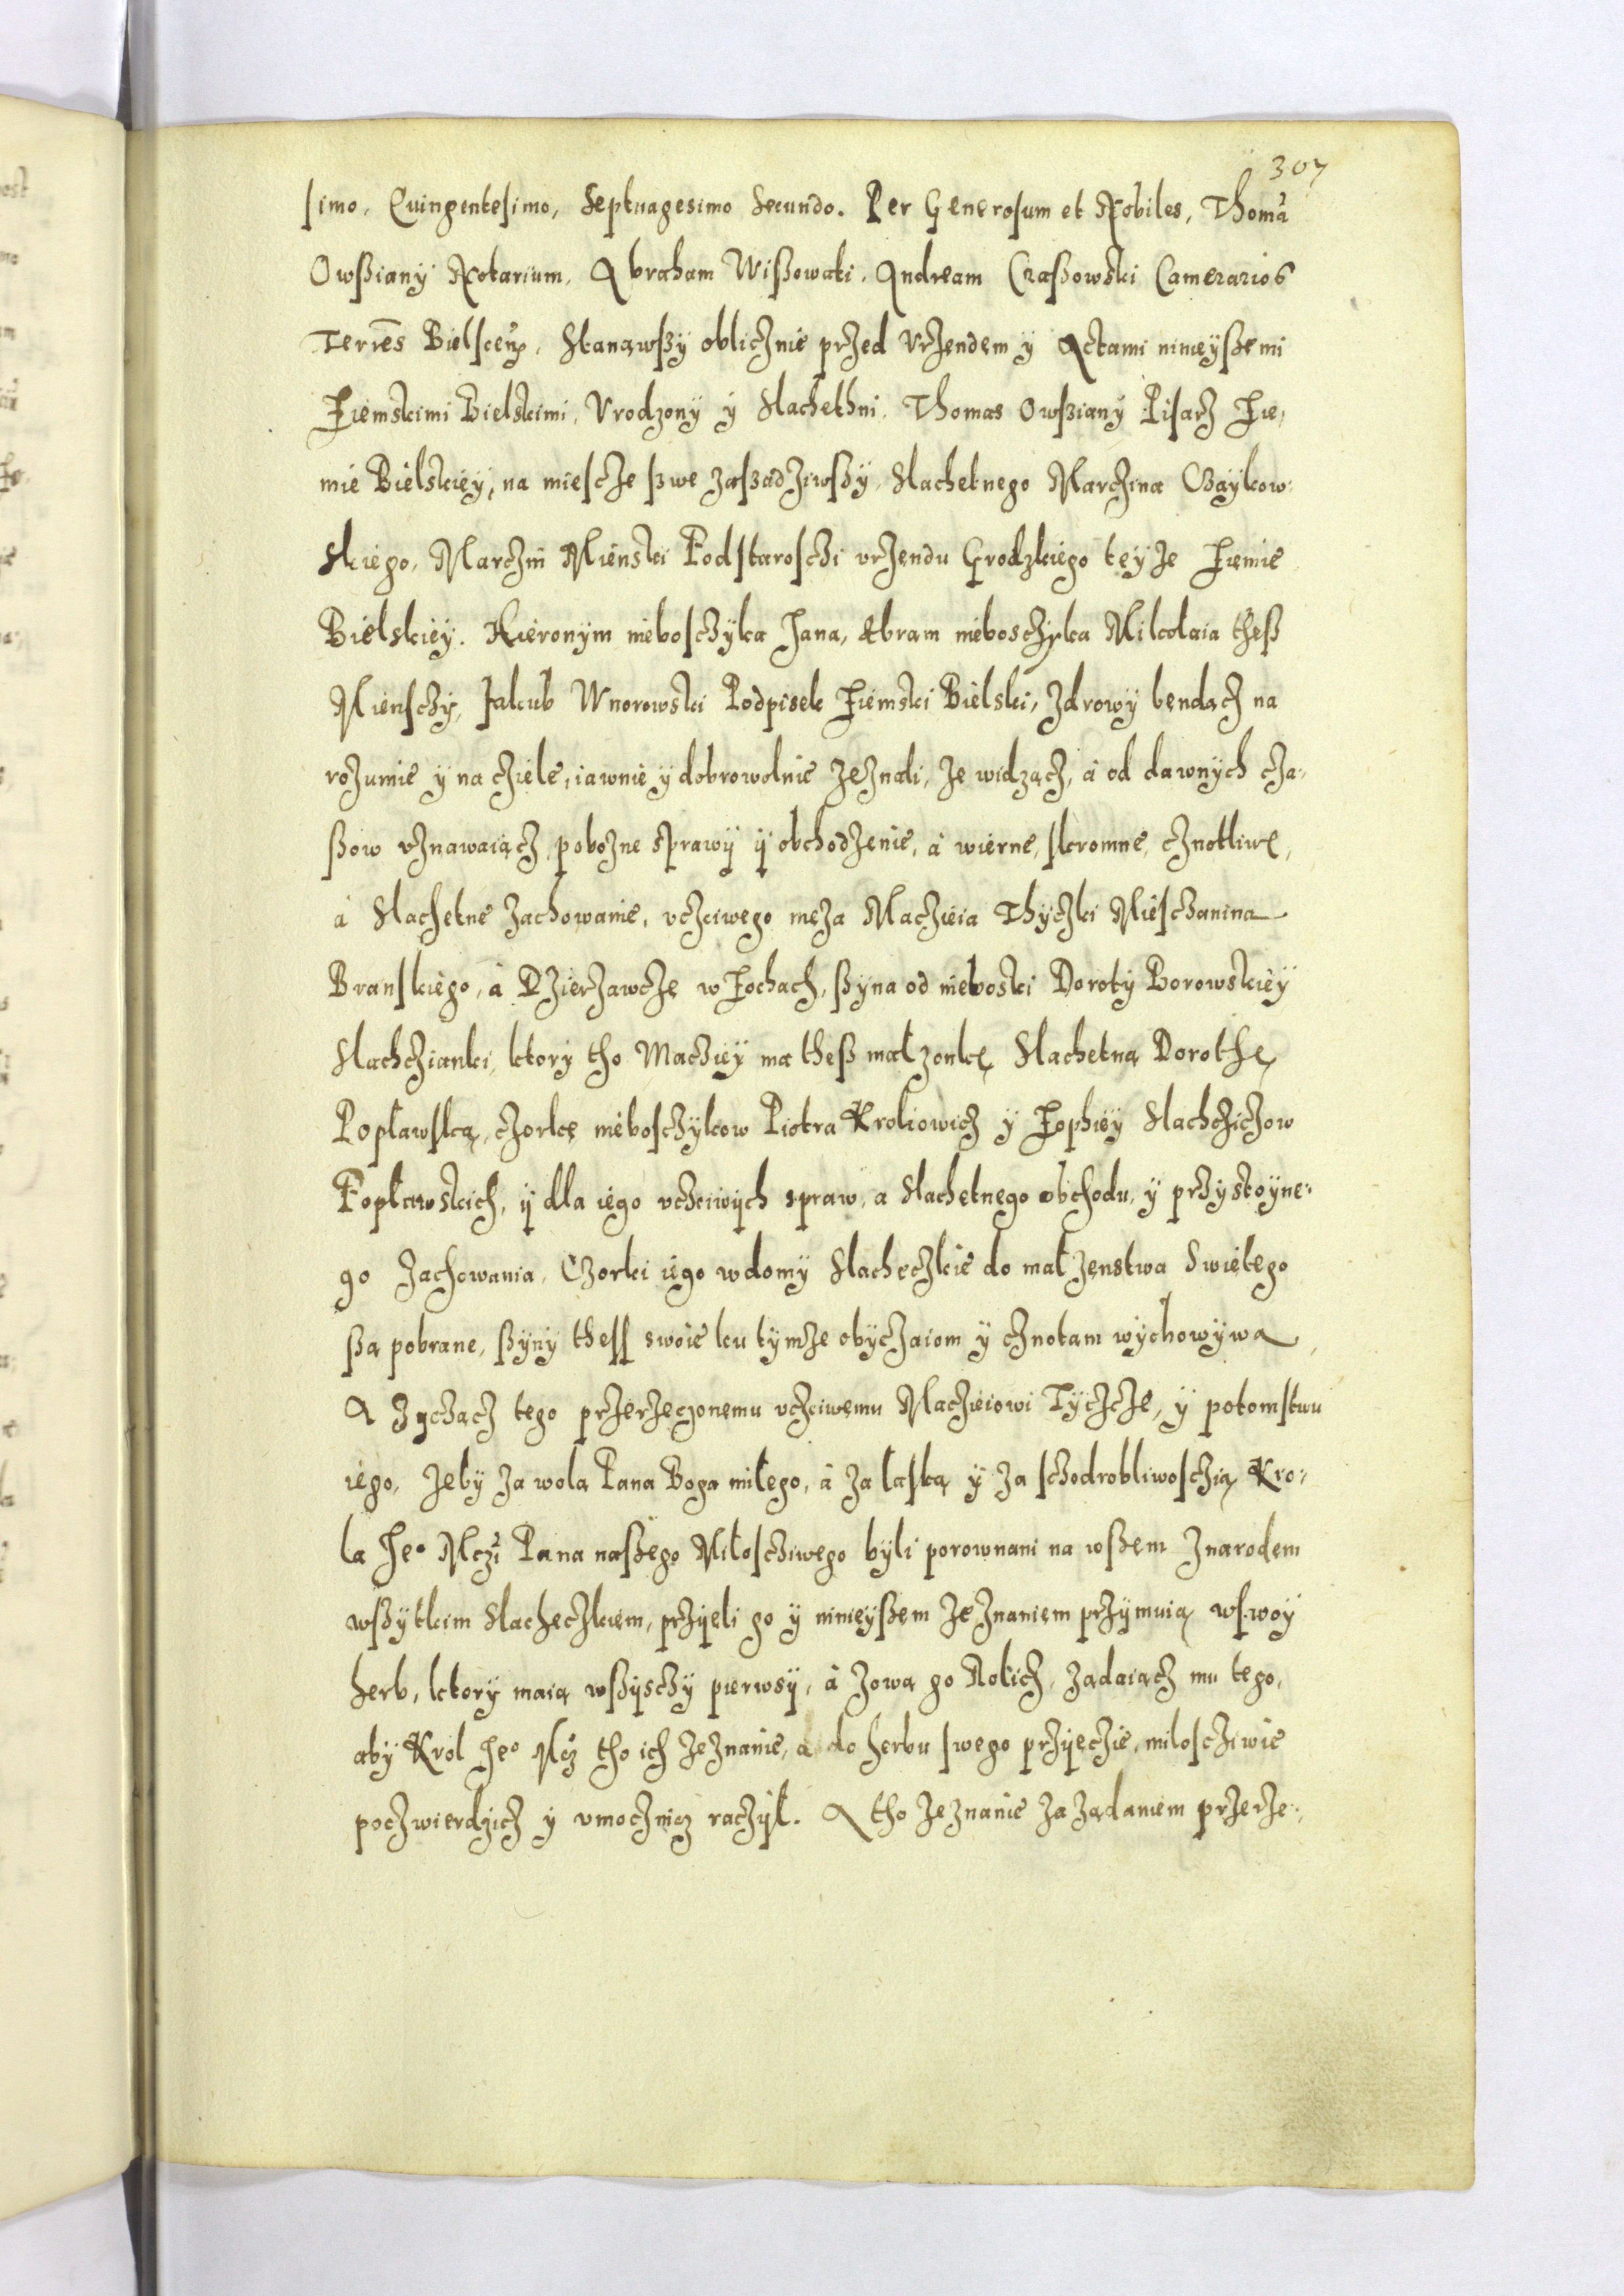 307
simo, Quingentesimo, Septuagesimo Secundo. Per Generosum et Nobiles, Thomā
Owsziany Notarium, Abraham Wiszowati, Andream Czaszowski Camerarios
Terrēs Bielscen̄, Stanąwszy oblicznie przed Vrzendem y Actami ninieyszemi
Ziemskimi Bielskimi, Vrodzony y Slachethni, Thomas Owsziany Pisarz Zie,
mie Bielskiey, na miescze szwe zaszadziwszy, Slachetnego Marczina Czaykow:
skiego, Marczin Mienski Podstarosczi vrzendu Grodzkiego teyze Ziemie
Bielskiey. Hieronym nieboszczyka Jana, Abram nieboszczyka Mikolaia thesz
Mienszczy, Jakub Wnorowski Podpisek Ziemski Bielski, Zdrowy bendącz na
rozumie y na cziele, iawnie y dobrowolnie zeznali, ze widzącz, á od dawnych cza:
szow vznawaiącz, pobozne sprawy y obchodzenie, á wierne, skromne, cznotliwe,
á Slachetne zachowanie, vczciwego męza Maczieia Thyczki Miesczanina
Branskiego, á Dzierzawcze w Zochach, szyna od nieboski Doroty Borowskiey
Slachczianki, ktory tho Macziey ma thesz malzonkę Slachetną Dorothę
Poplawską, czorkę niebosczykow Piotra Kroliowicz y Zophiey Slachcziczow
Poplawskich, y dla iego vczciwych spraw, a Slachetnego obchodu, y przystoyne:
go zachowania, Czorki iego w domy Slacheczkie do malzenstwa Swiętego
szą pobrane, szyny thess swoie ku tymze obyczaiom y cznotam wychowywa
A zyczącz tego przerzeczonemu vczciwemu Maczieiowi Tyczcze, y potomstwu
iego, zeby za wolą Pana Boga milego, á za laską y za sczodrobliwosczią Kro:
la Jeo Mczi Pana naszego Milosciwego byli porownani na wszem z narodem
wszytkim Slacheczkiem, przyęli go y ninieyszem zeznaniem przymuią w swoy
herb, ktory maią wszysczy pierwsy, á zową go Rolicz, ządaiącz mu tego,
aby Krol Jeo Mcz tho ich zeznanie, a do herbu swego przyęczie, milosciwie
poczwierdzicz y vmocznicz raczyl. A tho zeznanie za ządaniem przerze: